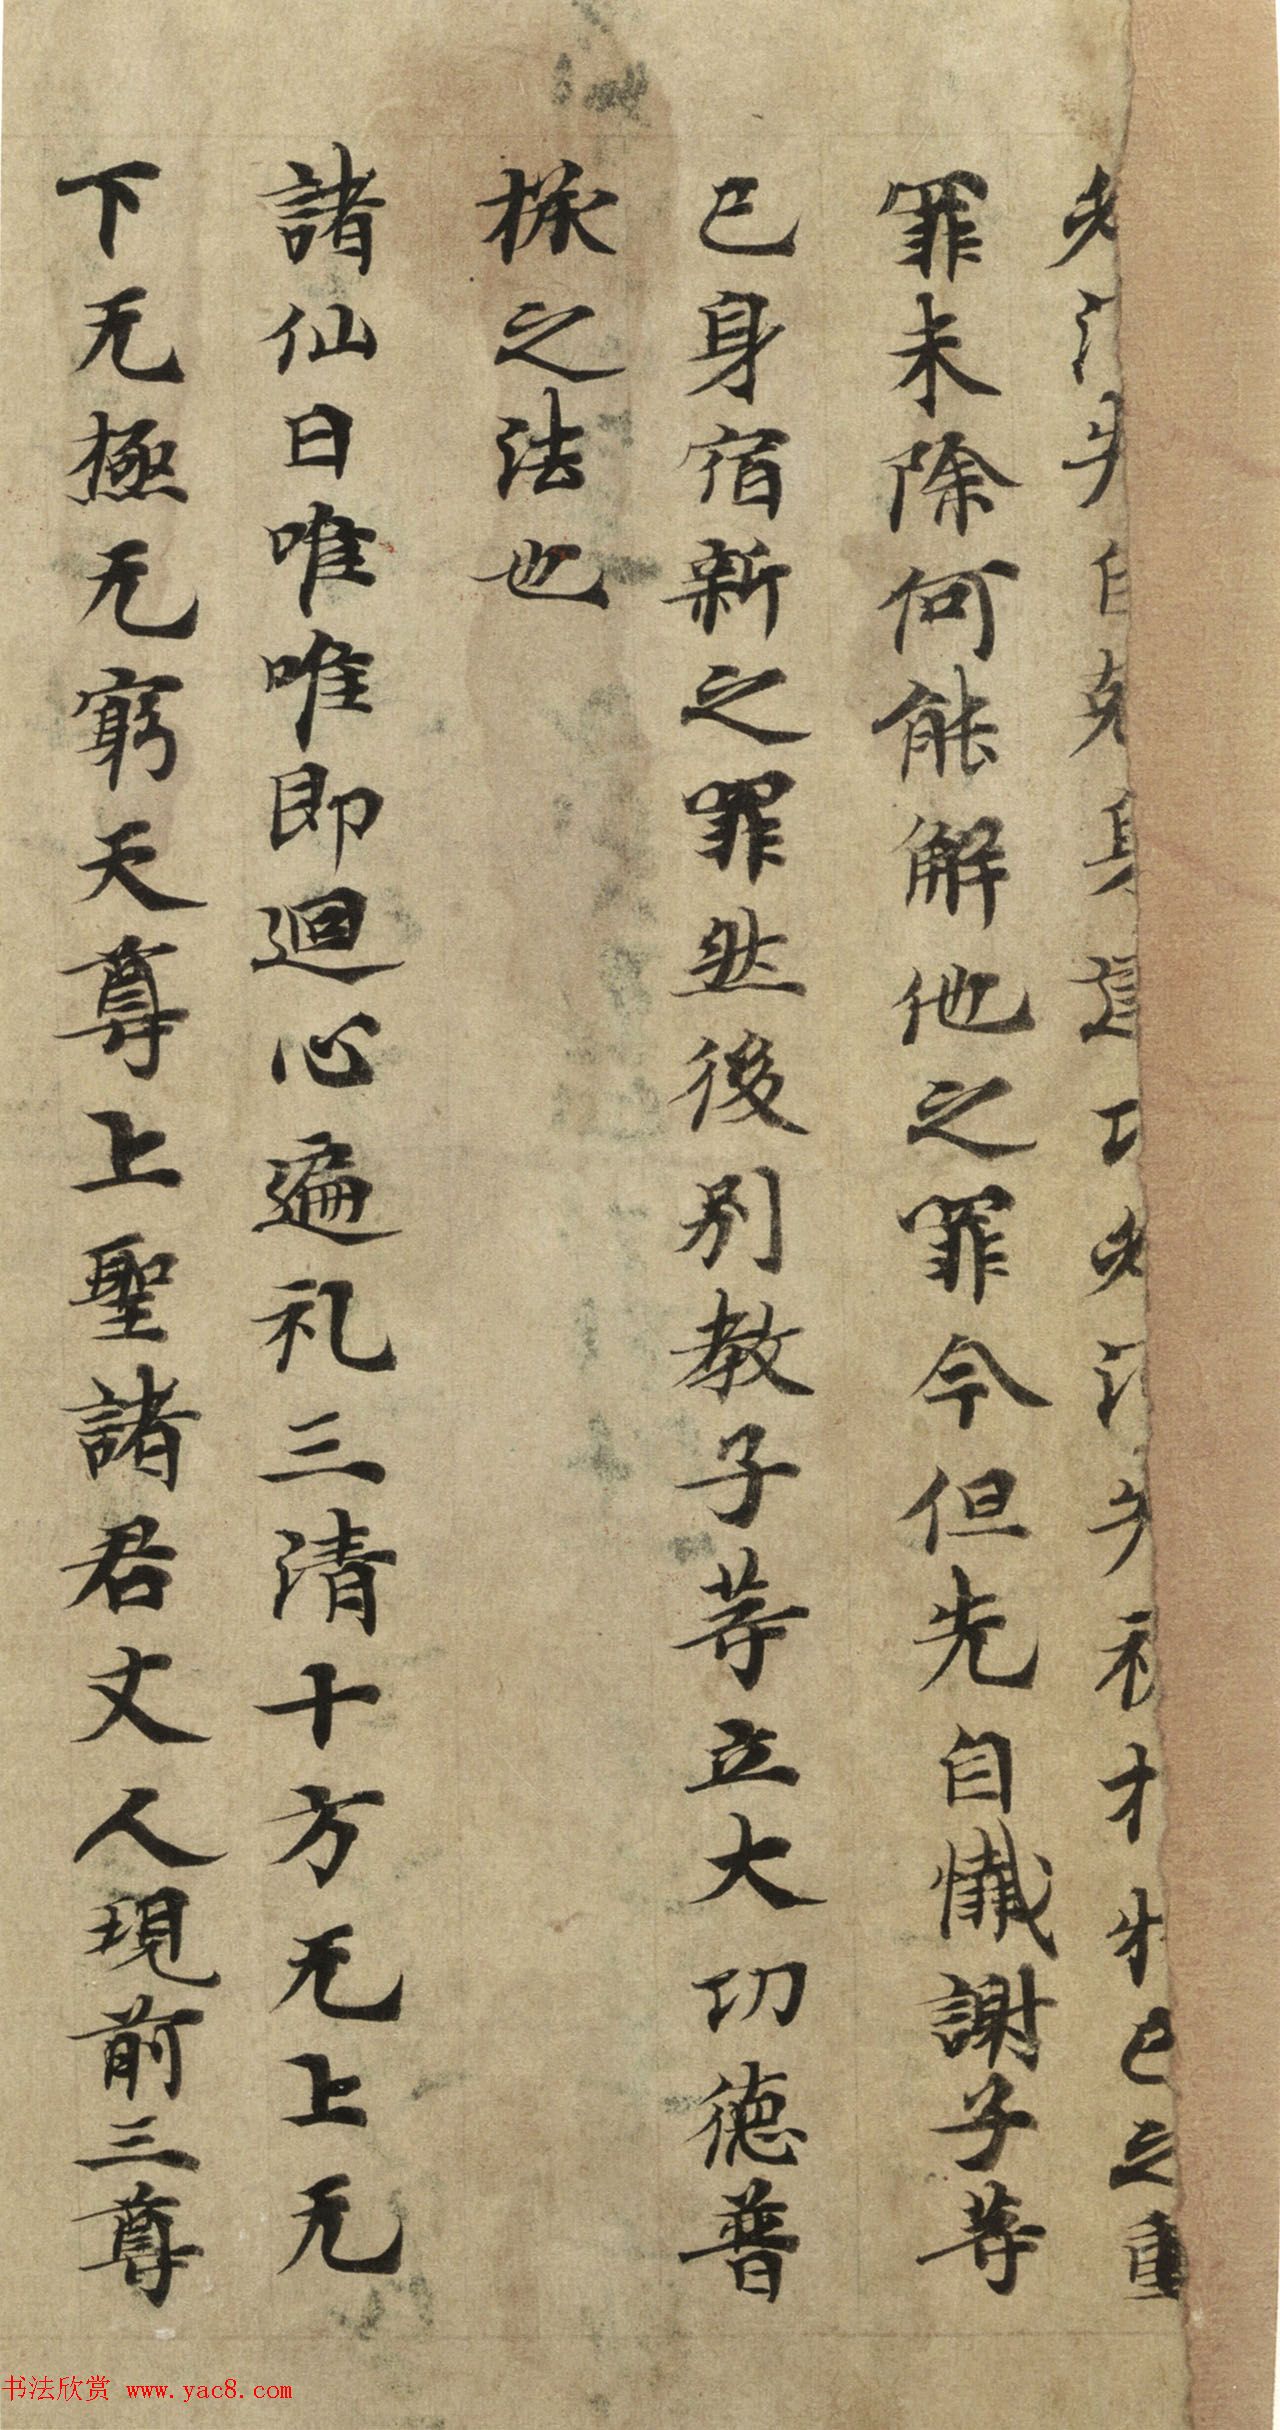 自剋身 已之重
罪未除何能解他之罪今但先自懺謝子等
已身宿新之罪然後別教子等立大功德普
之法也
諸仙曰唯唯即迴心遍礼三清十方无上无
下无極无窮天尊上聖諸君丈人現前三尊
书法欣赏 www.yac8.com